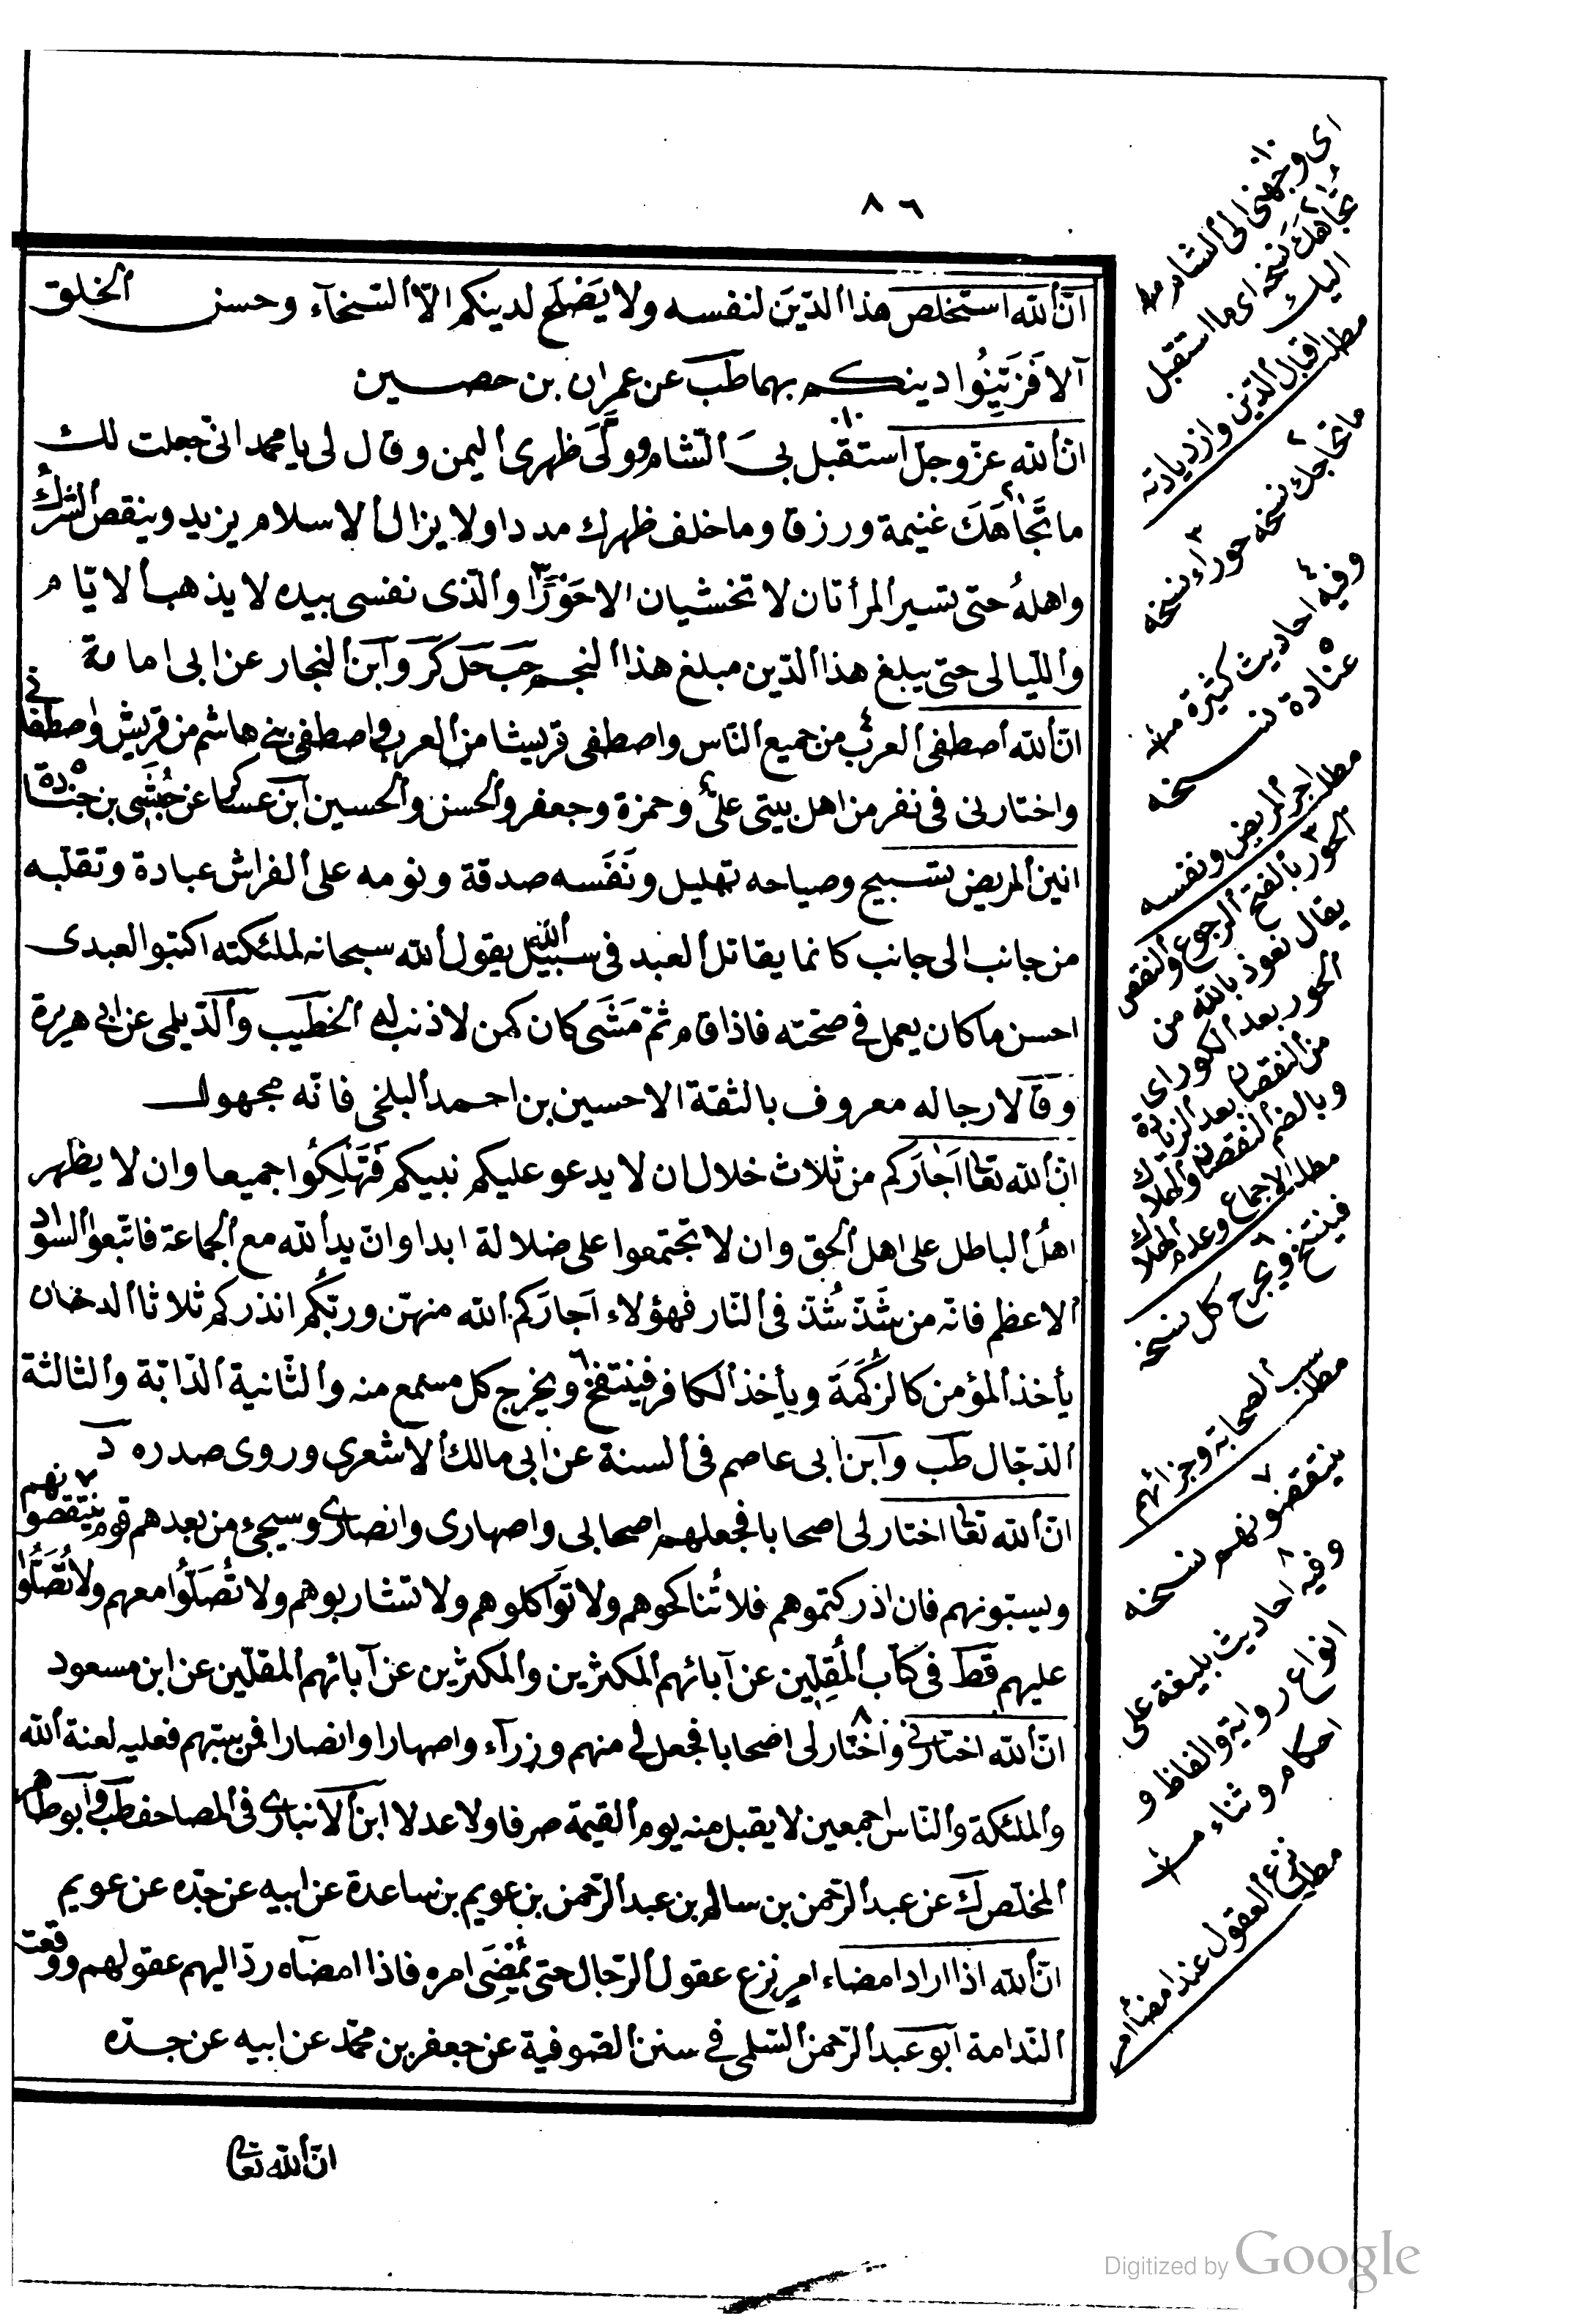 ٨٦
انّ الله استخلص هذا الدّينَ لنفسه ولا يَصْلَح لدينكم الاّ السّخآء وحسن الخلق
آلا فَزَيِّنُوا دينكم بهما طب عن عمران بن حصين
انّ الله عزّ وجلّ استقبل بىَ الشّام وولّى ظهرى اليمن وقال لى يا محمد انى جعلت لك
ما تُجَاهَكَ غنيمة ورزقا وما خلف ظهرك مددا ولا يزال الاسلام يزيد وينقص الشرك
واهلهُ حتى تسير المرأتان لا تخشيان الا جَوْرًا والّذى نفسى بيده لا يذهب الايّام
والليالى حتى يبلغ هذا الدّين مبلغ هذا النجم حب حل كر وابن النجار عن ابى امامة
انّ الله اصطفى العرب من جميع النّاس واصطفى قريشا من العرب واصطفى بنى هاشم من قريش واصطفانى
واختارنى فى نفر من اهل بيتى علىّ وحمزة وجعفر والحسن والحسين ابن عساكر عن حُبْشِى بن جنادة
انين المريض تسبيح وصياحه تهليل ونَفَسه صدقة ونومه على الفراش عبادة وتقلّبه
من جانب الى جانب كانما يقاتل العبد فى سبيل الله يقول الله سبحانه لملئكته اكتبوا لعبدى
احسن ما كان يعمل فى صحّته فاذا قام ثمّ مَشَى كان كمن لا ذنب له الخطيب والدّيلمى عن ابى هريرة
وقالا رجاله معروف بالثقة الا حسين بن احمد البلخى فانّه مجهول
انّ الله تعا اَجَارَكم من ثلاث خلال ان لا يدعو عليكم نبيكم فَتَهْلِكُوا جميعا وان لا يظهر
اهلُ الباطل على اهل الحق وان لا تجتمعوا على ضلالة ابدا وانّ يد الله مع الجماعة فاتّبعوا السواد
الاعظم فانّه من شَذّ شُذّ فى النّار فهؤلاء اَجارَكم الله منهنّ وربّكُم انذركم ثلاثا الدخان
يأخذ المؤمن كالزُكْمَةَ ويأخذ الكافر فينتفخ ويخرج كل مسمع منه والثّانية الدّابّة والثالثة
الدّجّال طب وابن ابى عاصم فى السنة عن ابى مالك الاشعرى وروى صدره د
انّ الله تعا اختار لى اصحابا فجعلهم اصحابى واصهارى وانصارى وسيجىء من بعدهم قوم ينتقصونهم
ويسبّونهم فان ادركتموهم فلا تُناكحوهم ولا تَوَاكلوهم ولا تشاربوهم ولا تُصَلّوا معهم ولا تُصَلُّوا
عليهم قط فى كتاب المُقِلّين عن آبائهم المكثرين والمكثرين عن آبائهم المقلّين عن ابن مسعود
انّ الله اختارنى واختار لى اصحابا فجعل لى منهم وزرآء واصهارا وانصارا فمن سبّهم فعليه لعنة الله
والملئكة والنّاس اجمعين لا يقبل منه يوم القيمة صرفا ولا عدلا ابن الانبارى فى المصاحف طب وابو طاهر
المخلّص ك عن عبد الرّحمن بن سالم بن عبد الرّحمن بن عويم بن ساعدة عن ابيه عن جدّه عن عويم
انّ الله اذا اراد امضاء امرٍ نزع عقول الرّجال حتى يُمْضِىَ امره فاذا امضآه ردّ اليهم عقولهم ووقعت
النّدامة ابو عبد الرّحمن السّلمى فى سنن الصّوفية عن جعفر بن محمّد عن ابيه عن جدّه
انّ الله تعا
اى وجهنى الى الشام منه
تجاهك نسخه اى ما استقبل
اليك
مطلب اقبال الدّين وازدياده
ما تجاهك نسخه حوراء نسخه
وفيه احاديث كثيرة منه
عنادة نسخه
مطلب اجر المريض ونفسه
الحور بالفتح الرجوع والنقص
يقال نعوذ بالله من
الحور بعد الكور اى
من النقصان بعد الزيادة
وبالضم النقصان والهلاك
مطلب الاجماع وعدم الهلاك
فينتفخ ويخرج كل نسخه
مطلب سب الصحابة وجزائهم
ينتقصونهم نسخه
وفيه احاديث بليغة على
انواع رواية والفاظ و
احكام وثناء منه
مطلب نزع العقول عند امضاء امر
Digitized by Google